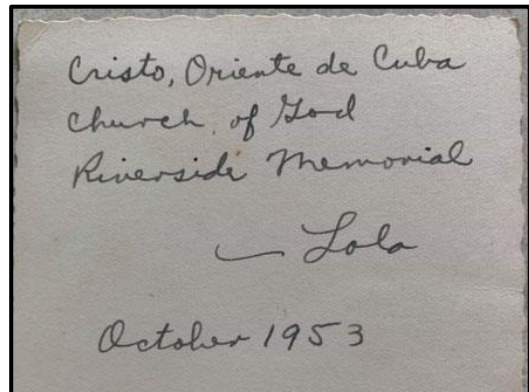 Cristo, Oriente de Cuba
Church of God
Riverside Memorial
— Lola
October 1953